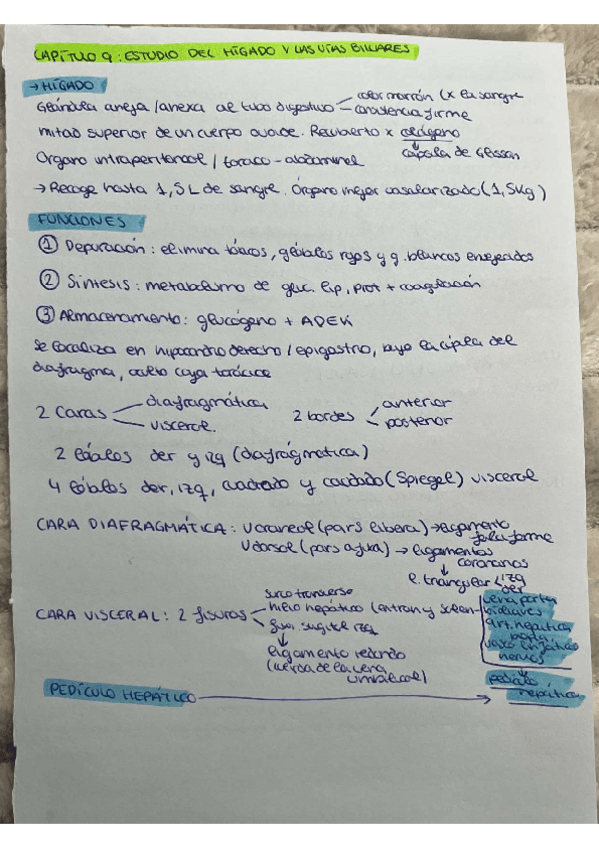 CAPÍTULO 9: ESTUDIO DEL HÍGADO Y LAS VÍAS BILIARES
→ HÍGADO
Glándula aneja/anexa al tubo digestivo — color marrón (x la sangre
consistencia firme
mitad superior de un cuerpo ovoide. Recubierto x colágeno
↓
cápsula de Glisson
Órgano intraperitoneal / toraco-abdominal
→ Recoge hasta 1,5L de sangre. Órgano mejor vascularizado (1,5kg)
FUNCIONES
① Depuración: elimina tóxicos, glóbulos rojos y g. blancos envejecidos
② Síntesis: metabolismo de gluc. lip, prot + coagulación
③ Almacenamiento: glucógeno + ADEK
Se localiza en hipocondrio derecho/epigastrio, bajo la cúpula del
diafragma, oculto caja torácica
2 caras — diafragmática
— visceral.
2 bordes — anterior
— posterior
2 lóbulos der y izq (diafragmática)
4 lóbulos der, izq, cuadrado y caudado (Spiegel) visceral
CARA DIAFRAGMÁTICA: V craneal (pars libera) → ligamento
falciforme
V dorsal (pars afixa) → ligamentos
coronarios
↓
l. triangular izq
der
CARA VISCERAL: 2 fisuras — surco transverso
hilio hepático (entran y salen
sagital izq
↓
ligamento redondo
(cerca de la vena
umbilical)
vena porta
biliares
art. hepática
vaso linfático
nervios
↓
pedículo
hepático
PEDÍCULO HEPÁTICO →